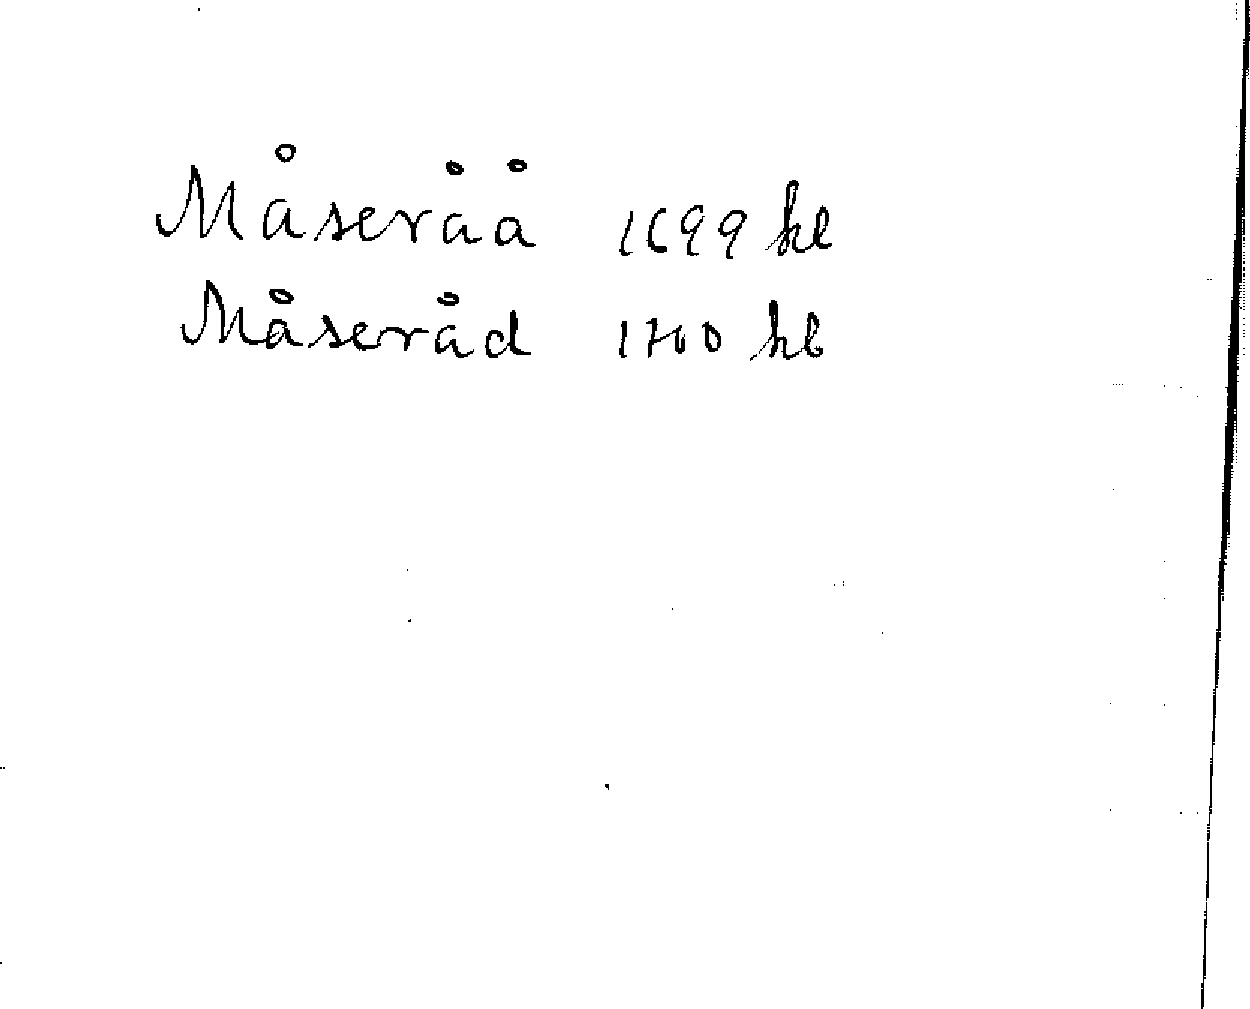 Måseråå 1699 hl
Måseråd 1700 hl